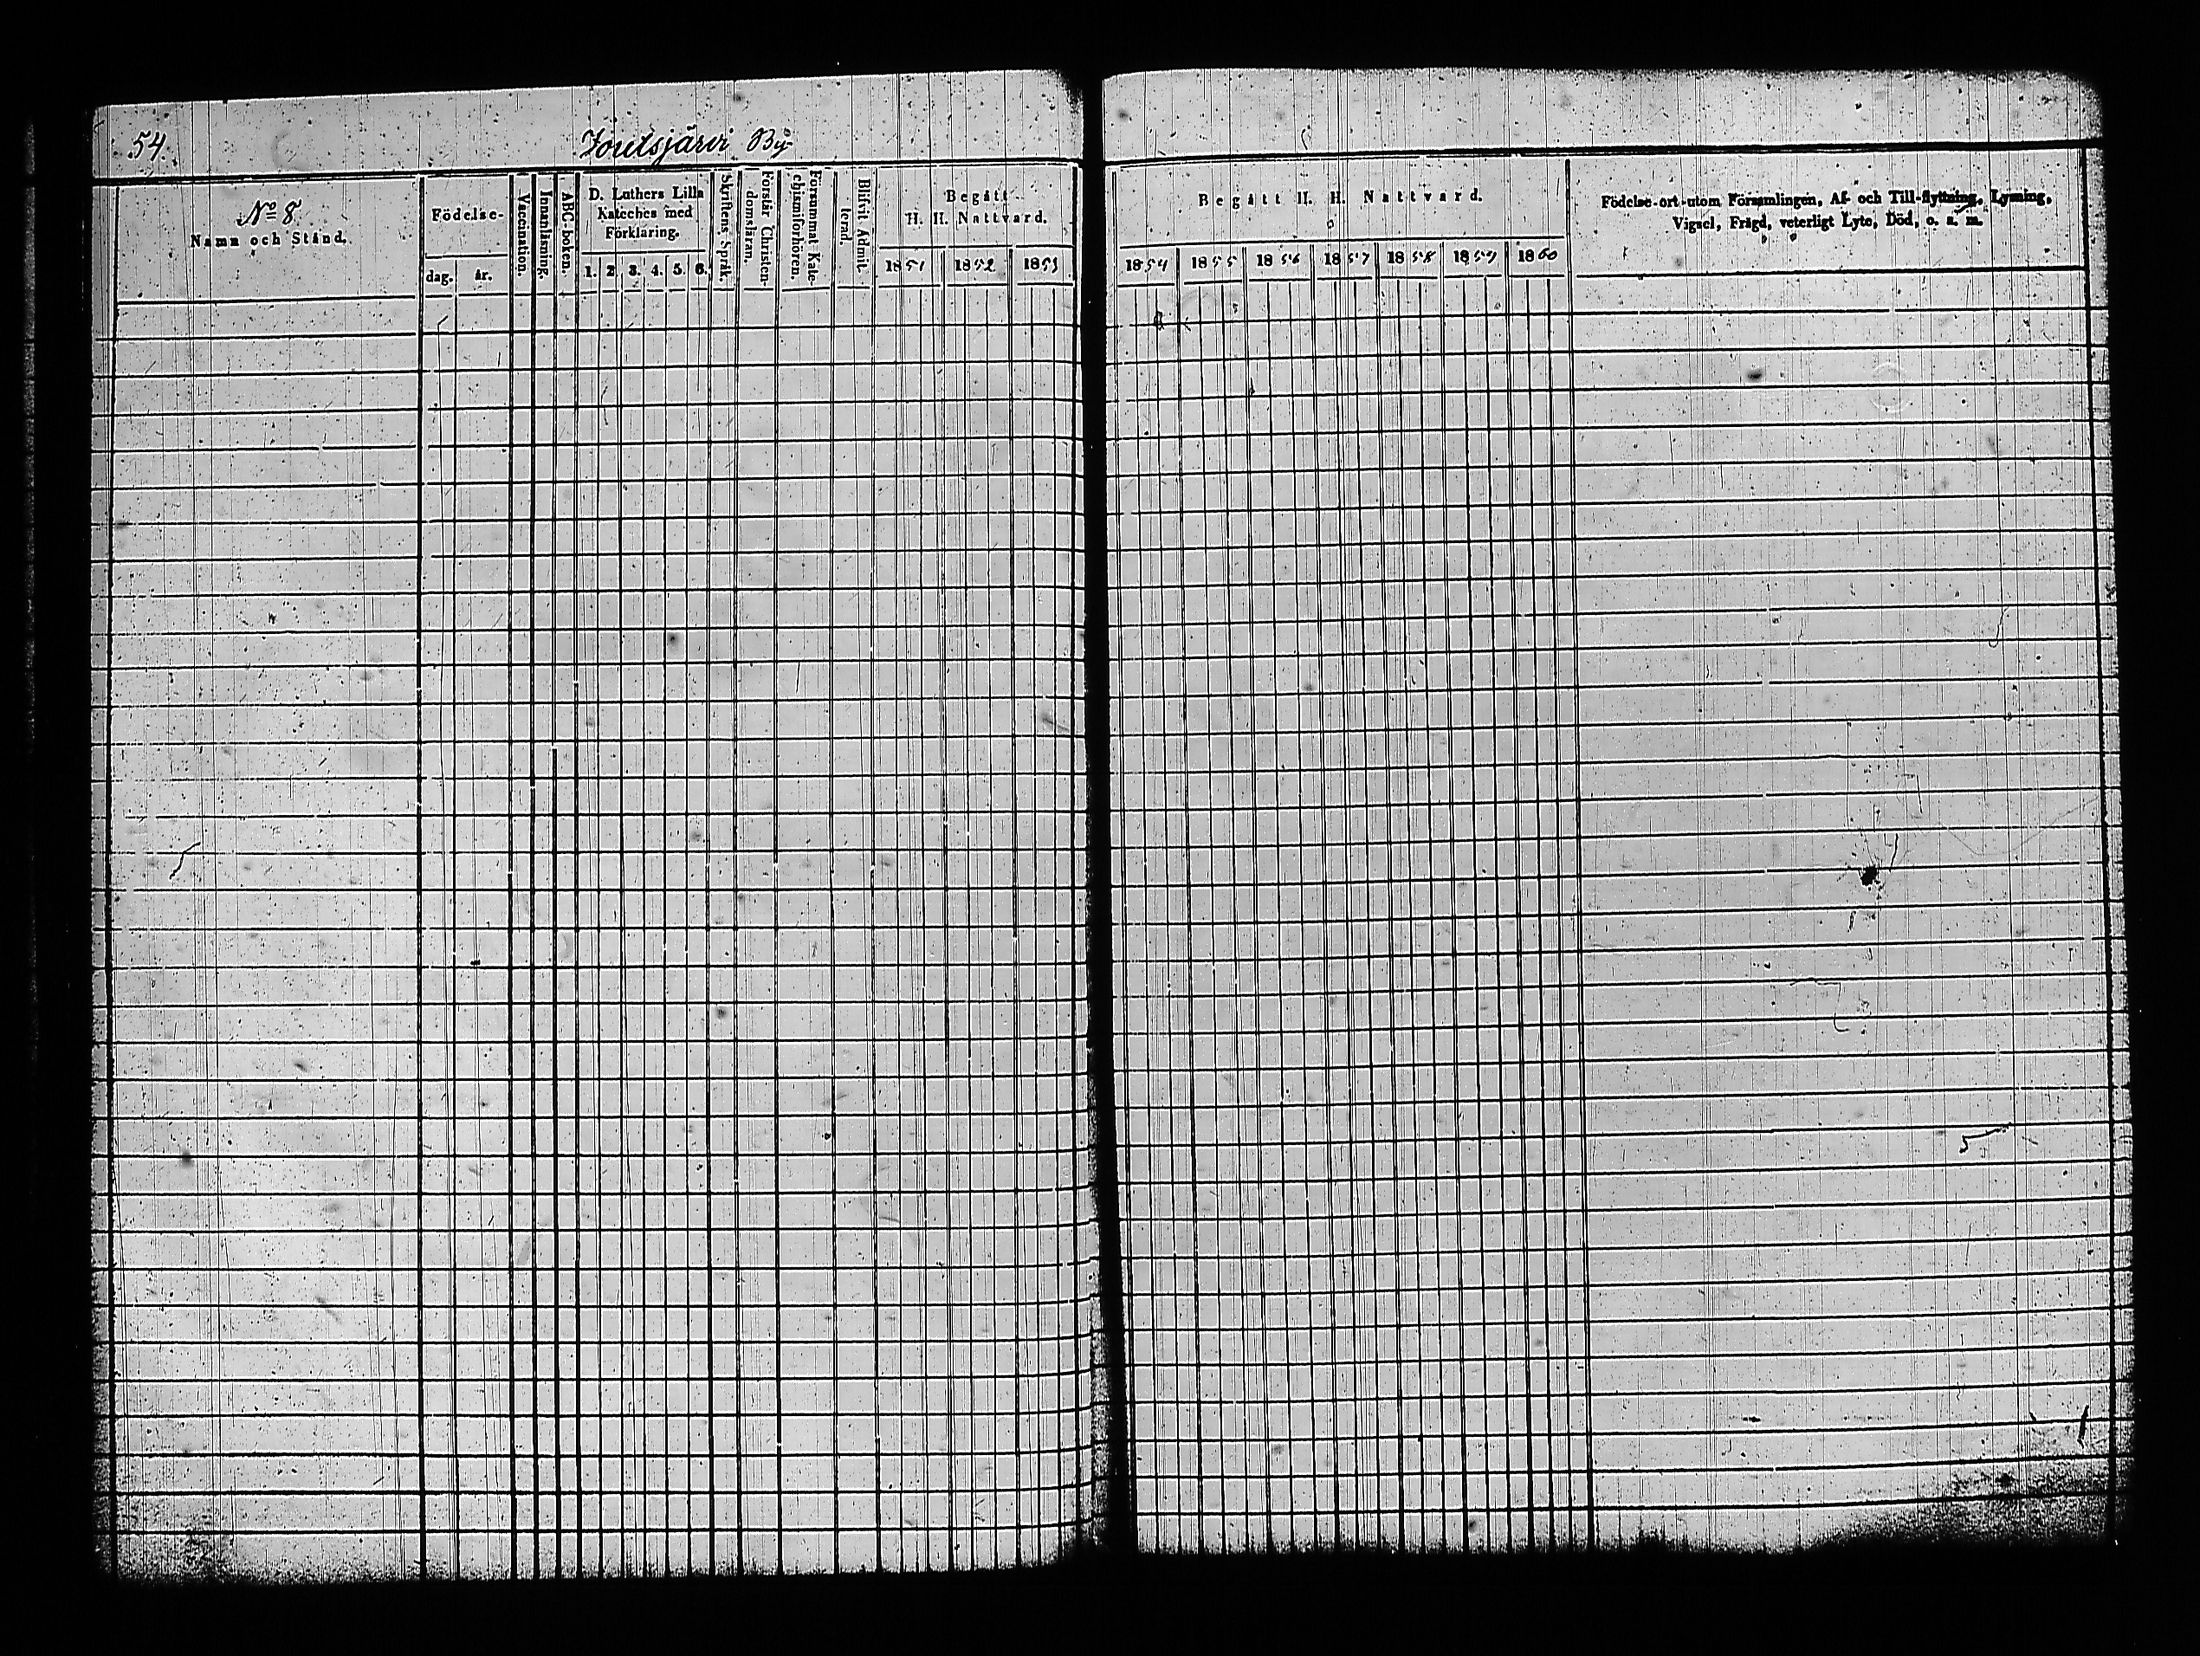 54.
Joutsjärvi By
No 8
Namn och Stånd.
Födelse-
dag.
år.
Vaccination.
Innanläsning.
ABC-boken.
D. Luthers Lilla
Kateches med
Förklaring.
1. 2. 3. 4. 5. 6.
Skriftens Språk.
Förstår Christen-
domsläran.
Försummat Kate-
chismiförhören.
Blifvit Admit-
terad.
Begått
H. H. Nattvard.
1851
1852
1853
Begått H. H. Nattvard.
1854
1855
1856
1857
1858
1859
1860
Födelse-ort utom Församlingen, Af- och Till-flyttning, Lysning,
Vigsel, Frägd, veterligt Lyte, Död, o. a. m.